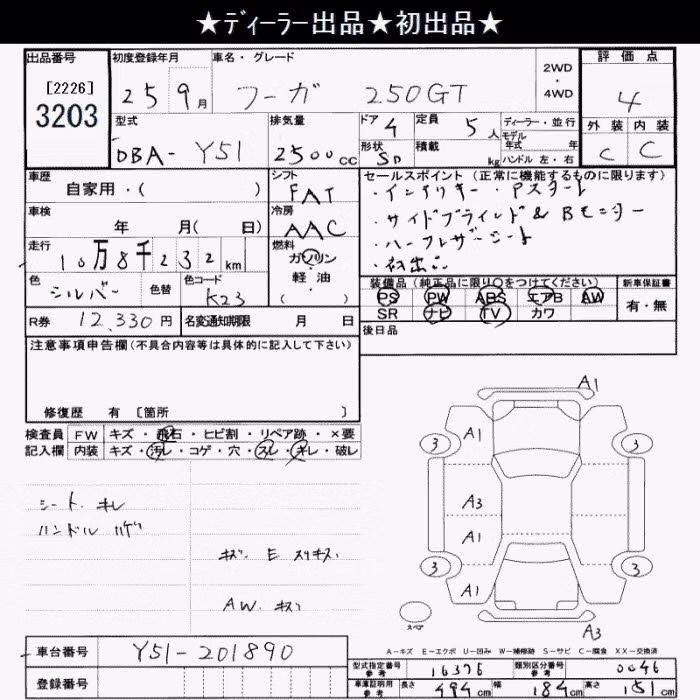 ★ディーラー出品★初出品★
出品番号 初度登録年月 車名・グレード 2WD・4WD 評価点
[2226] 3203 25 9月 フーガ 250GT 4
型式 排気量 ドア 4 定員 5人 ディーラー・並行 外装 内装
DBA-Y51 2500cc 形状 SD 積載 kg モデル年式 年 C C
ハンドル 左・右
車歴 シフト セールスポイント (正常に機能するものに限ります)
自家用・( ) FAT ・インテリキー・Pスタート
車検 冷房 ・サイドブラインド&Bモニター
年 月( 日) AAC ・ハーフレザーシート
走行 燃料 ・初出品
10万8千232km ガソリン
色 色替 色コード 軽油 装備品 (純正品に限り○をつけてください) 新車保証書
シルバー K23 ( ) PS PW ABS エアB AW 有・無
R券 12,330円 名変通知期限 月 日 SR ナビ TV カワ
後日品
注意事項申告欄(不具合内容等は具体的に記入して下さい)
修復歴 有 [箇所 ]
検査員 FW キズ・飛石・ヒビ割・リペア跡・×要
記入欄 内装 キズ・汚レ・コゲ・穴・スレ・キレ・破レ
シート キレ
ハンドル ハゲ
キズ E スリキズ
AW.キズ
A1
A1
3 3
A3
A1
3 3
A1
スペア
A3
A-キズ E-エクボ U-凹み W-補修跡 S-サビ C-腐食 XX-交換済
車台番号 Y51-201890
登録番号
型式指定番号 参考 16376 類別区分番号 参考 0046
車庫証明用 参考 長さ 494cm 幅 184cm 高さ 151cm